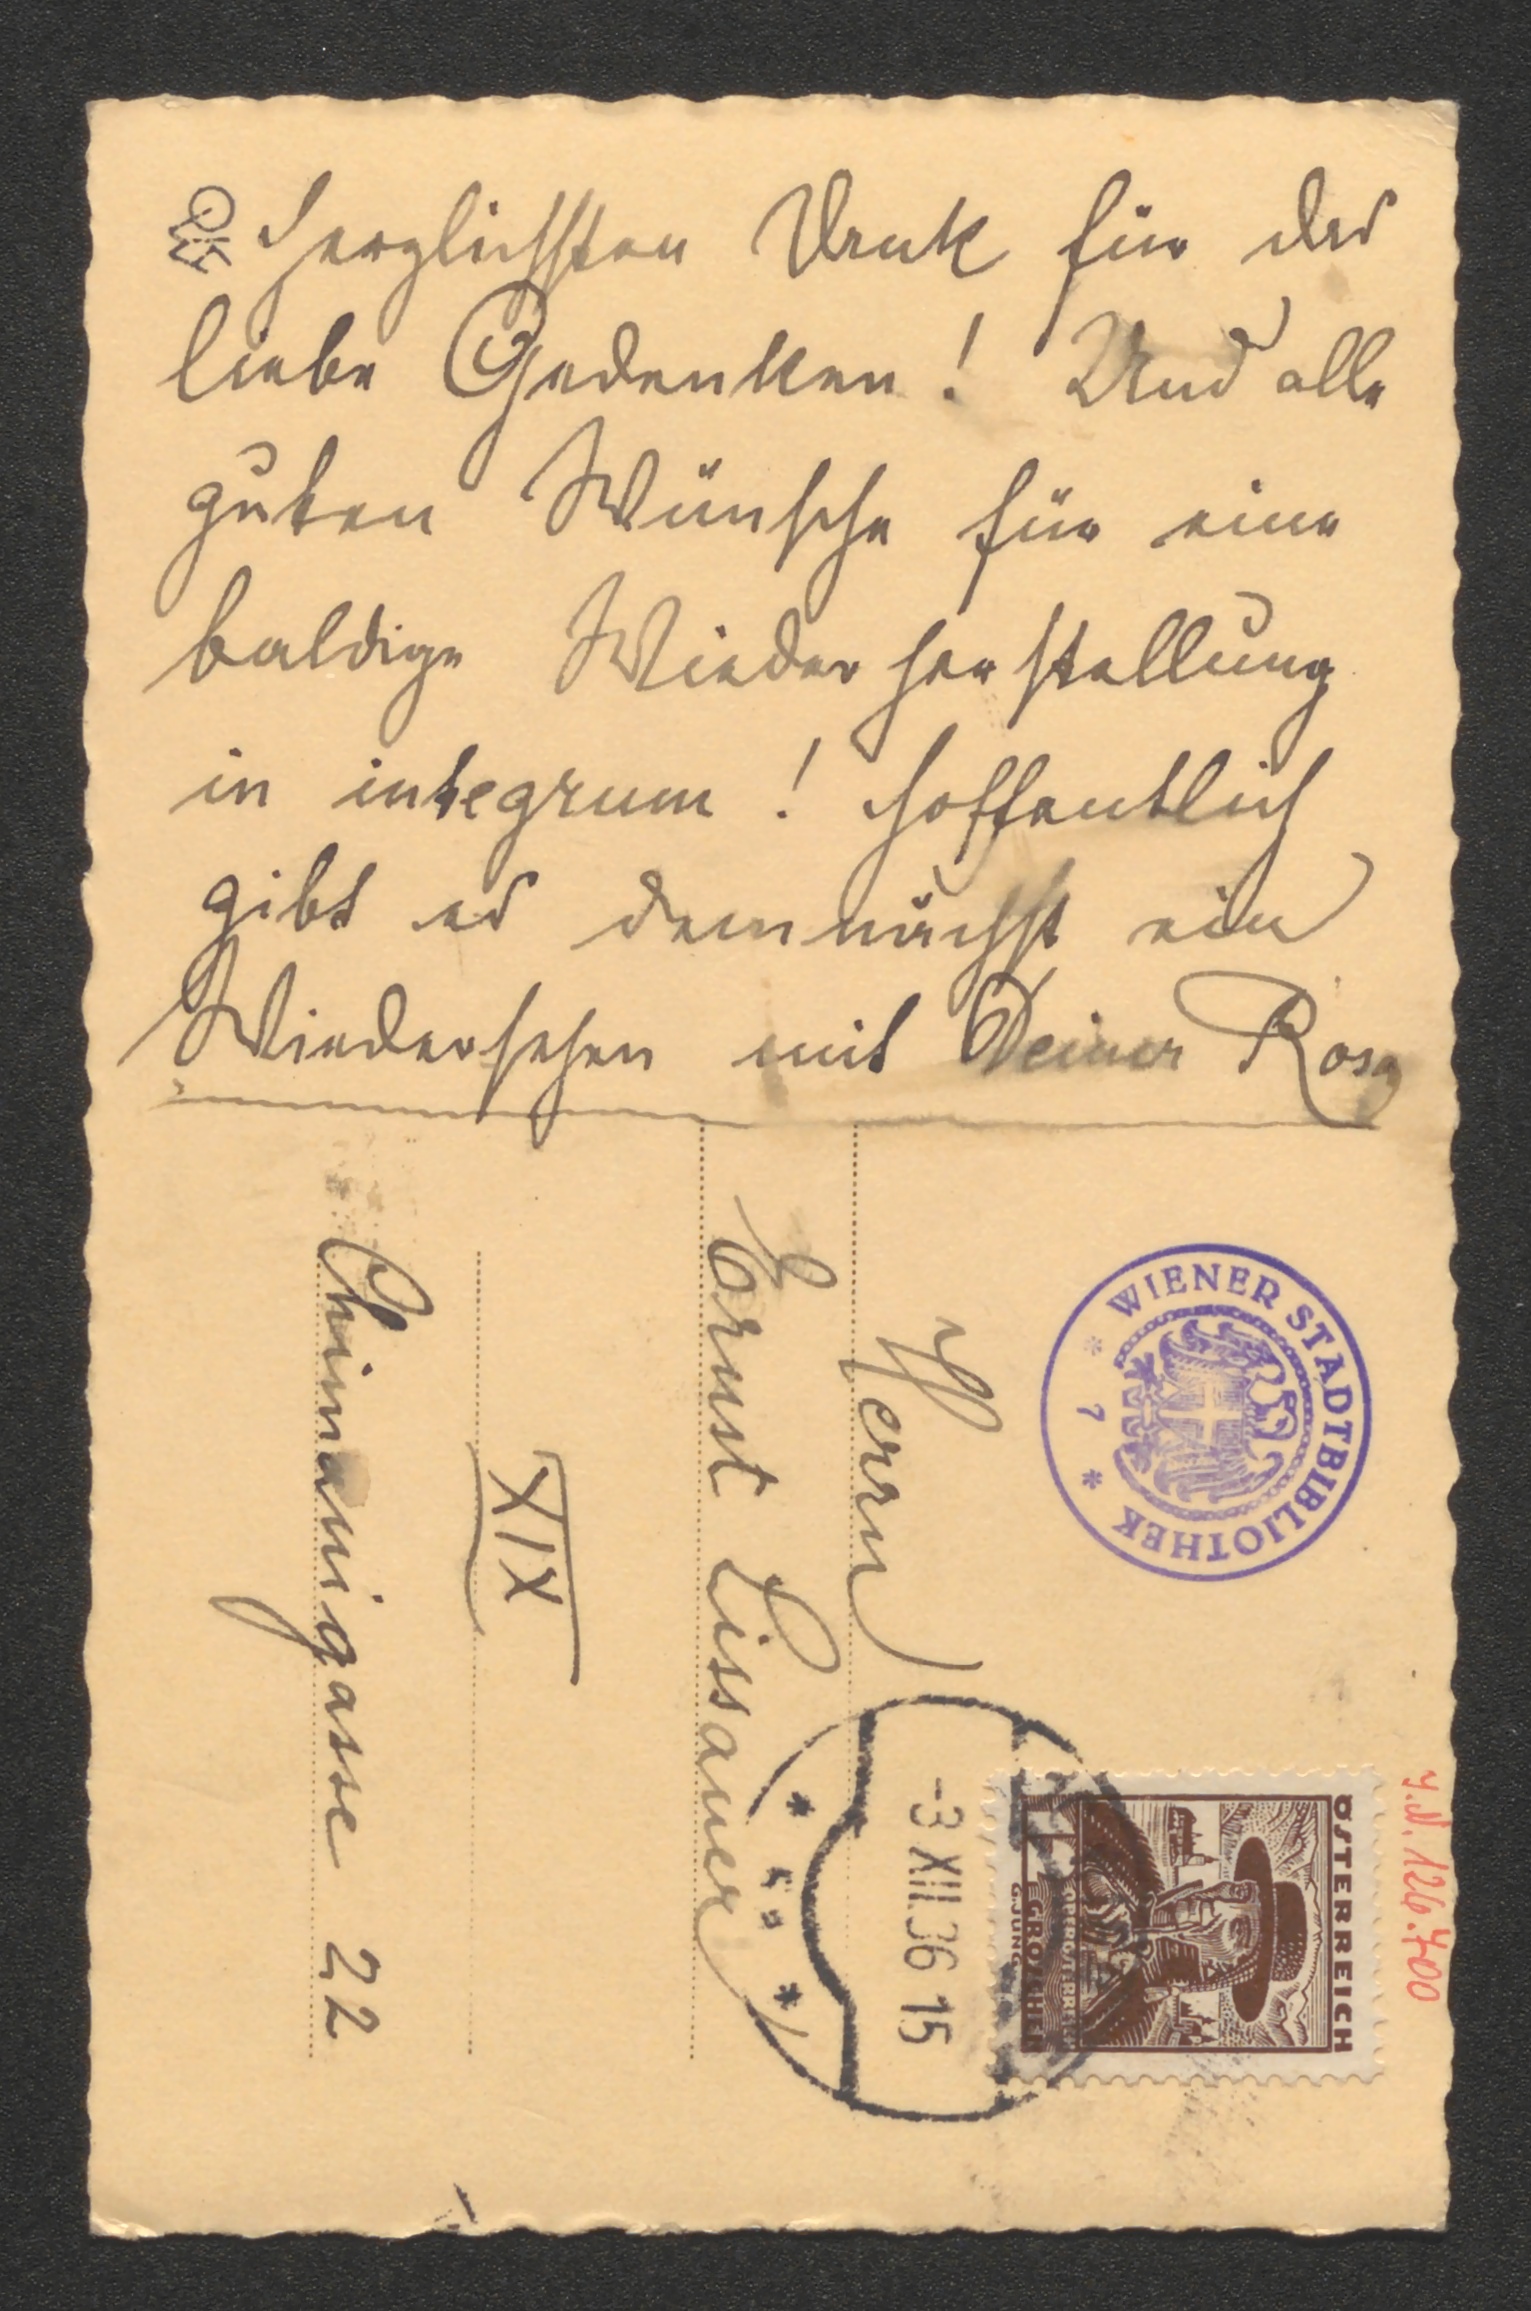 Herzlichsten Dank für das
liebe Gedenken! Und alle
guten Wünsche für eine
baldige Wiederherstellung
in integrum! Hoffentlich
gibt es demnächst ein
Wiedersehen mit Deiner Rosa
Herrn
Ernst Lissauer
XIX
Chimanigasse 22
WIENER STADTBIBLIOTHEK
* 7 *
-3 XII.36 15
ÖSTERREICH
GROSCHEN
G.JUNG
J.N. 126.700